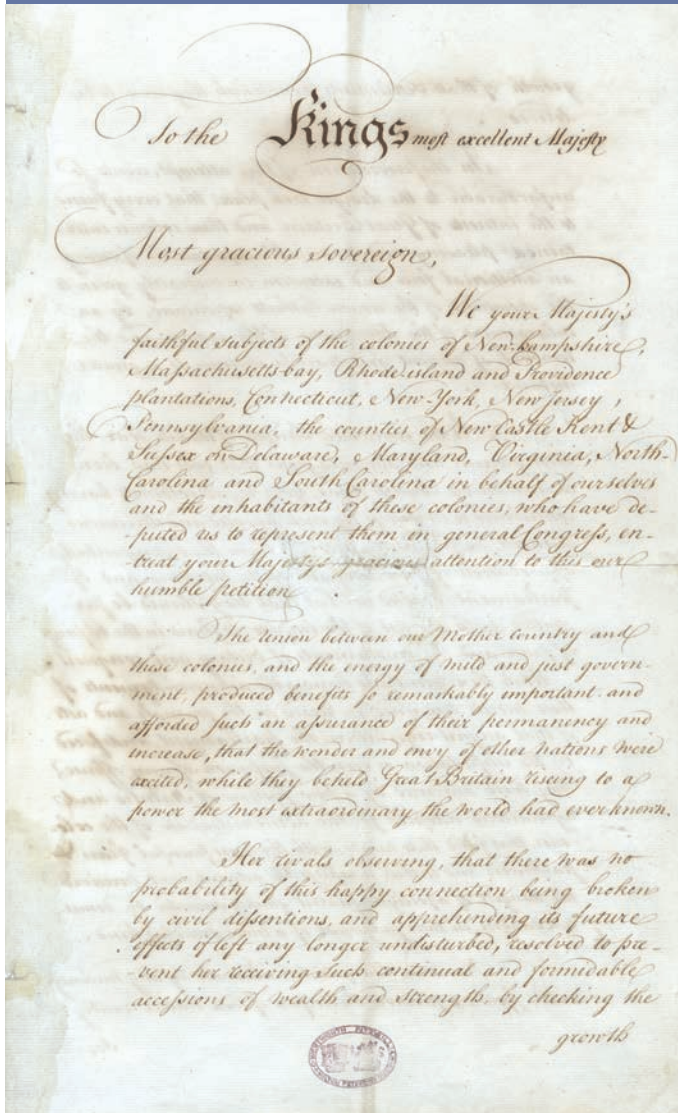 To the Kings most excellent Majesty
Most gracious sovereign,
We your Majesty's
faithful subjects of the colonies of New-hampshire,
Massachusetts-bay, Rhode-island and Providence
plantations, Connecticut, New-York, New Jersey,
Pennsylvania, the counties of New Castle Kent &
Sussex on Delaware, Maryland, Virginia, North-
Carolina and South Carolina in behalf of ourselves
and the inhabitants of these colonies, who have de-
-puted us to represent them in general Congress, en-
-treat your Majestys gracious attention to this our
humble petition
The union between our Mother country and
these colonies, and the energy of mild and just govern-
ment, produced benefits so remarkably important and
afforded such an assurance of their permanency and
increase, that the wonder and envy of other nations were
excited, while they beheld Great Britain riseing to a
power the most extraordinary the world had ever known.
Her rivals observing, that there was no
probability of this happy connection being broken
by civil dissentions, and apprehending its future
effects if left any longer undisturbed, resolved to pre-
-vent her receiving such continual and formidable
accessions of wealth and strength, by checking the
growth